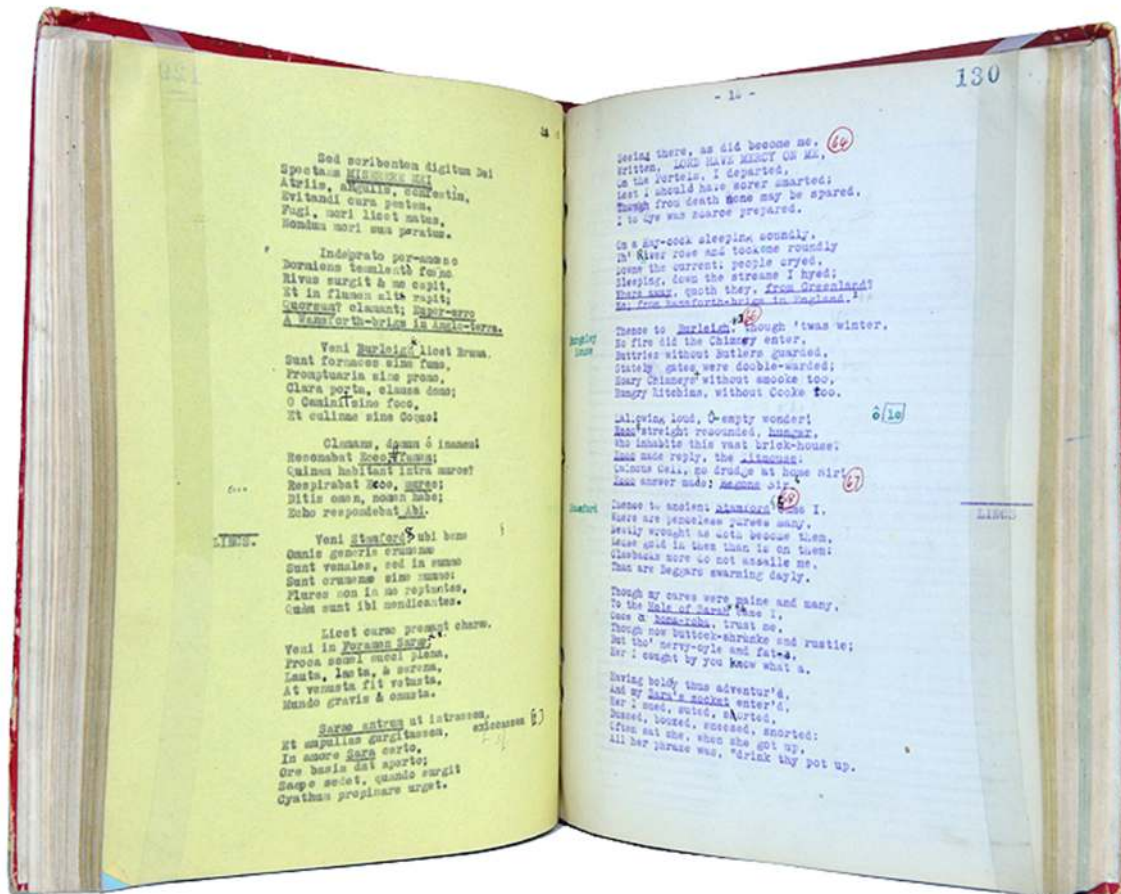 Sed scribentem digitum Dei
Spectans MISERERE MEI
Atriis, angulis, confestim,
Evitandi cura pestem,
Fugi, mori licet natus,
Nondum mori sum paratus.
Indeprato per-amoeno
Dormiens temulente foeno
Rivus surgit & me capit,
Et in flumen alte rapit;
Quorsum? clamant;
A Wansforth-brigs in Anglo-terra.
Veni Burleigh licet Bruma,
Sunt fornaces sine fumo,
Promptuaria sine promo,
Clara porta, clausa domo;
O Camini sine foco,
Et culinae sine Coquo!
Clamans, domum ó inanem!
Resonabat Ecco, famem;
Quinam habitant intra muros?
Respirabat Ecco, mures;
Ditis omen, nomen habe;
Echo respondebat Abi.
LINCS.
Veni Stamford ubi bene
Omnis generis crumenae
Sunt venales, sed in summo
Sunt crumenae sine nummo:
Plures non in me reptantes,
Quàm sunt ibi mendicantes.
Licet curae premant charae,
Veni in Foramen Sarae;
Proca semel succi plena,
Lauta, laeta, & serena,
At venusta fit vetusta,
Mundo gravis & onusta.
Sarae antrum ut intrassem,
Et ampullas gurgitassem, exiccassem
In amore Sara certo,
Ore basia dat aperto;
Saepe sedet, quando surgit
Cyathum propinare urget.
130
Seeing there, as did become me, 64
Written, LORD HAVE MERCY ON ME,
On the Portels, I departed,
Lest I should have sorer smarted;
Though from death none may be spared,
I to dye was scarce prepared.
On a Hay-cock sleeping soundly,
Th' River rose and tookeme roundly
Downe the current; people cryed,
Sleeping, down the streame I hyed;
Where away, quoth they, from Greenland?
No; from Wansforth-brigs in England.
Burghley House
Thence to Burleigh, though 'twas winter,
No fire did the Chimney enter,
Buttries without Butlers guarded,
Stately gates were dooble-warded;
Hoary Chimneys without smooke too,
Hungry Kitchins, without Cooke too.
Hallowing loud, Ô empty wonder! ô
Ecco streight resounded, hunger,
Who inhabits this vast brick-house?
Ecco made reply, the titmouse;
Ominous Cell, no drudge at home Sir!
Ecco answer made; Begone Sir. 67
Stamford
LINCS
Thence to ancient Stamford came I, 68
Where are penceless purses many,
Neatly wrought as doth become them,
Lesse gold in them than is on them:
Clawbacks more do not assaile me,
Than are Beggars swarming dayly.
Though my cares were maine and many,
To the Hole of Sarah came I,
Once a bona-roba, trust me,
Though now buttock-shrunke and rustie;
But tho' nervy-oyle and fat-a,
Her I caught by you know what a.
Having boldy thus adventur'd,
And my Sara's socket enter'd,
Her I sued, suted, sorted,
Bussed, bouzed, sneesed, snorted:
Often sat she, when she got up,
All her phrase was, "drink thy pot up.